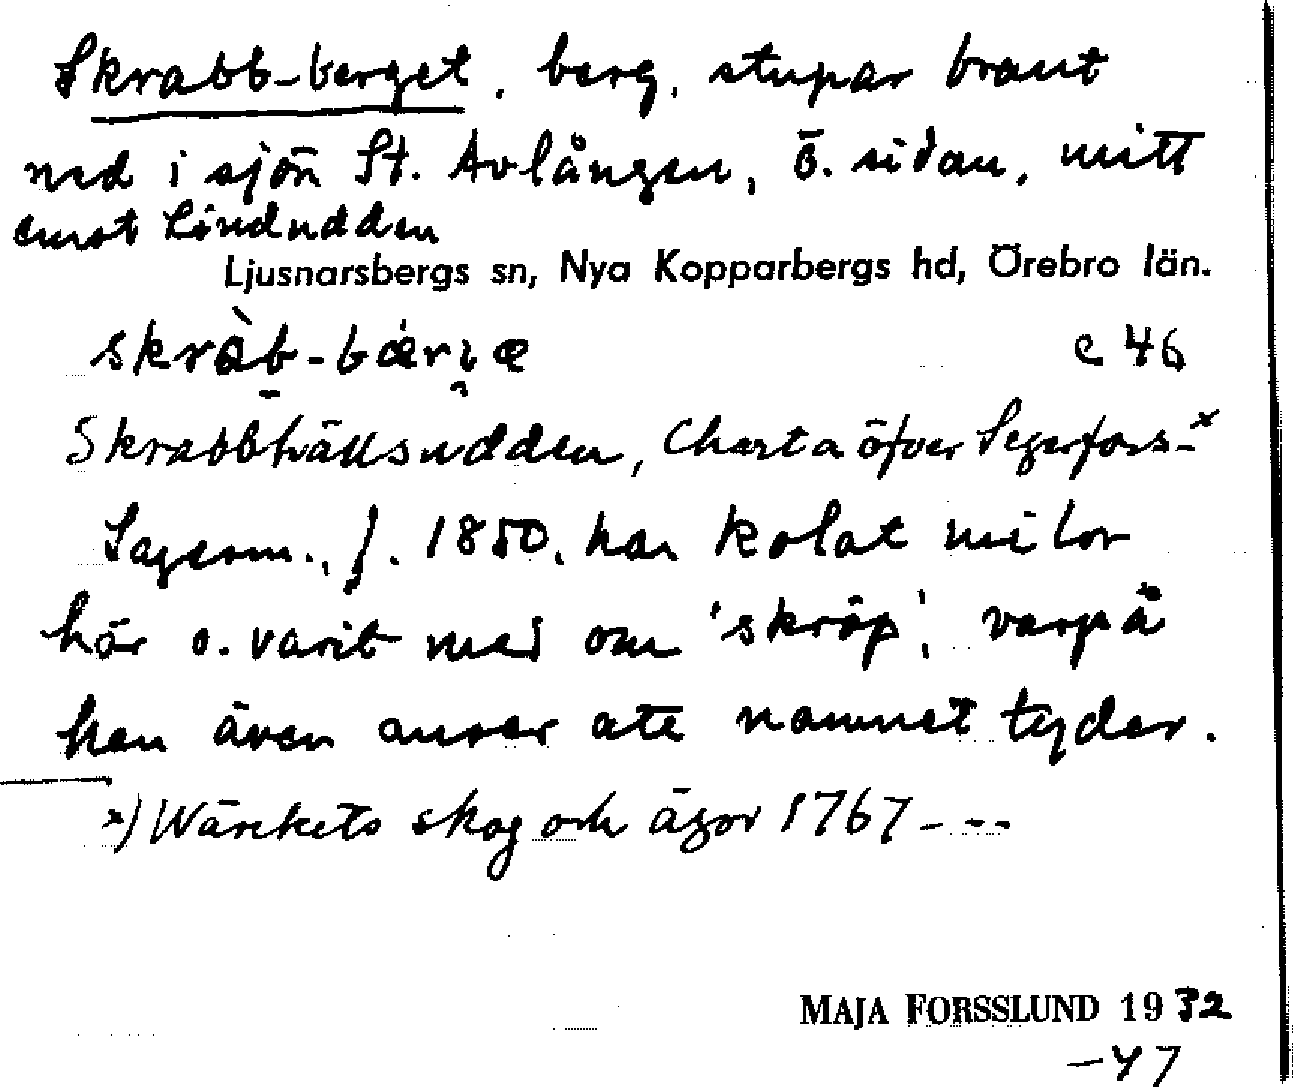 Skrabb-berget. berg, stupar brant
ned i sjön St. Avlången, ö. sidan, mitt
emot Lindudden
Ljusnarsbergs sn, Nya Kopparbergs hd, Örebro län.
skràb-bærjæ c 46
Skrabbhällsudden, Charta öfver Segerfors-x
Sagesm., f. 1850, har kolat milor
här o. varit med om 'skråp', varpå
han även anser att namnet tyder.
x) Wärckets skog och ägor 1767 - - -
MAJA FORSSLUND 1932
-47